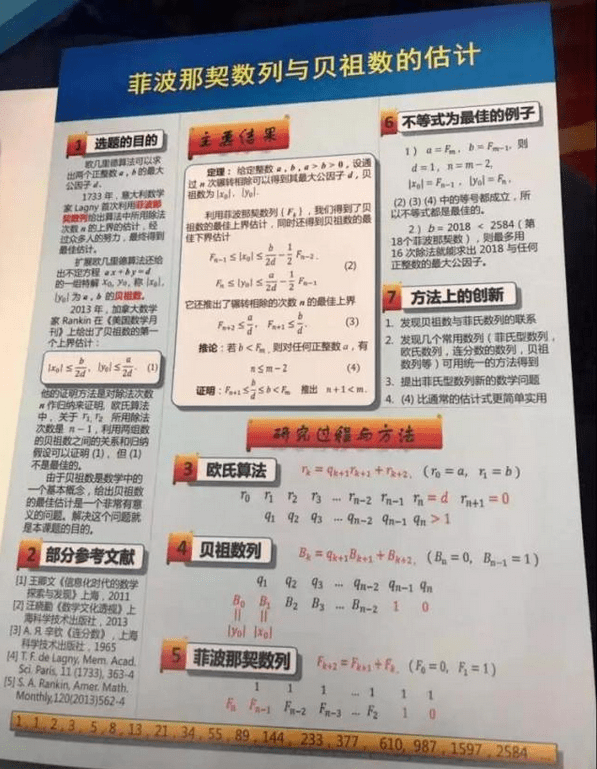 菲波那契数列与贝祖数的估计
1 选题的目的
欧几里德算法可以求
出两个正整数 a, b 的最大
公因子 d.
1733 年，意大利数学
家 Lagny 首次利用菲波那
契数列给出算法中所用除法
次数 n 的上界的估计，经
过众多人的努力，最终得到
最佳估计。
扩展欧几里德算法还给
出不定方程 ax+by=d
的一组特解 x₀, y₀, 称 |x₀|,
|y₀| 为 a, b 的贝祖数。
2013 年，加拿大数学
家 Rankin 在《美国数学月
刊》上给出了贝祖数的第一
个上界估计：
|x₀| ≤ b/2d, |y₀| ≤ a/2d. (1)
他的证明方法是对除法次数
n 作归纳来证明. 欧氏算法
中，关于 r₁, r₂ 所用除法
次数是 n − 1，利用两组数
的贝祖数之间的关系和归纳
假设可以证明 (1)、但 (1)
不是最佳的。
由于贝祖数是数学中的
一个基本概念，给出贝祖数
的最佳估计是一个非常有意
义的问题。解决这个问题就
是本课题的目的。
2 部分参考文献
[1] 王卿文《信息化时代的数学
探索与发现》上海，2011
[2] 汪晓勤《数学文化透视》上
海科学技术出版社，2013
[3] А. Я. 辛钦《连分数》，上海
科学技术出版社，1965
[4] T. F. de Lagny, Mem. Acad.
Sci. Paris, 11 (1733), 363-4
[5] S. A. Rankin, Amer. Math.
Monthly,120(2013)562-4
主要结果
定理：给定整数 a, b, a > b > 0，设通
过 n 次辗转相除可以得到其最大公因子 d, 贝
祖数为 |x₀|, |y₀|.
利用菲波那契数列 {Fₖ}，我们得到了贝
祖数的最佳上界估计，同时还得到贝祖数的最
佳下界估计
Fₙ₋₁ ≤ |x₀| ≤ b/2d − 1/2 Fₙ₋₂.
(2)
Fₙ ≤ |y₀| ≤ a/2d − 1/2 Fₙ₋₁
它还推出了辗转相除的次数 n 的最佳上界
Fₙ₊₂ ≤ a/d, Fₙ₊₁ ≤ b/d. (3)
推论：若 b < Fₘ, 则对任何正整数 a，有
n ≤ m − 2 (4)
证明：Fₙ₊₁ ≤ b/d ≤ b < Fₘ 推出 n + 1 < m.
6 不等式为最佳的例子
1）a = Fₘ, b = Fₘ₋₁, 则
d = 1, n = m − 2,
|x₀| = Fₙ₋₁, |y₀| = Fₙ,
(2) (3) (4) 中的等号都成立，所
以不等式都是最佳的。
2）b = 2018 < 2584（第
18个菲波那契数），则最多用
16 次除法就能求出 2018 与任何
正整数的最大公因子。
7 方法上的创新
1. 发现贝祖数与菲氏数列的联系
2. 发现几个常用数列（菲氏型数列，
欧氏数列，连分数的数列，贝祖
数列等）可用统一的方法得到
3. 提出菲氏型数列新的数学问题
4. (4) 比通常的估计式更简单实用
研究过程与方法
3 欧氏算法 rₖ = qₖ₊₁rₖ₊₁ + rₖ₊₂, (r₀ = a, r₁ = b)
r₀ r₁ r₂ r₃ … rₙ₋₂ rₙ₋₁ rₙ = d rₙ₊₁ = 0
q₁ q₂ q₃ … qₙ₋₂ qₙ₋₁ qₙ > 1
4 贝祖数列 Bₖ = qₖ₊₁Bₖ₊₁ + Bₖ₊₂, (Bₙ = 0, Bₙ₋₁ = 1)
q₁ q₂ q₃ … qₙ₋₂ qₙ₋₁ qₙ
B₀ B₁ B₂ B₃ … Bₙ₋₂ 1 0
|| ||
|y₀| |x₀|
5 菲波那契数列 Fₖ₊₂ = Fₖ₊₁ + Fₖ, (F₀ = 0, F₁ = 1)
1 1 1 … 1 1 1
Fₙ Fₙ₋₁ Fₙ₋₂ Fₙ₋₃ … F₂ 1 0
1, 1, 2, 3, 5, 8, 13, 21, 34, 55, 89, 144, 233, 377, 610, 987, 1597, 2584 …